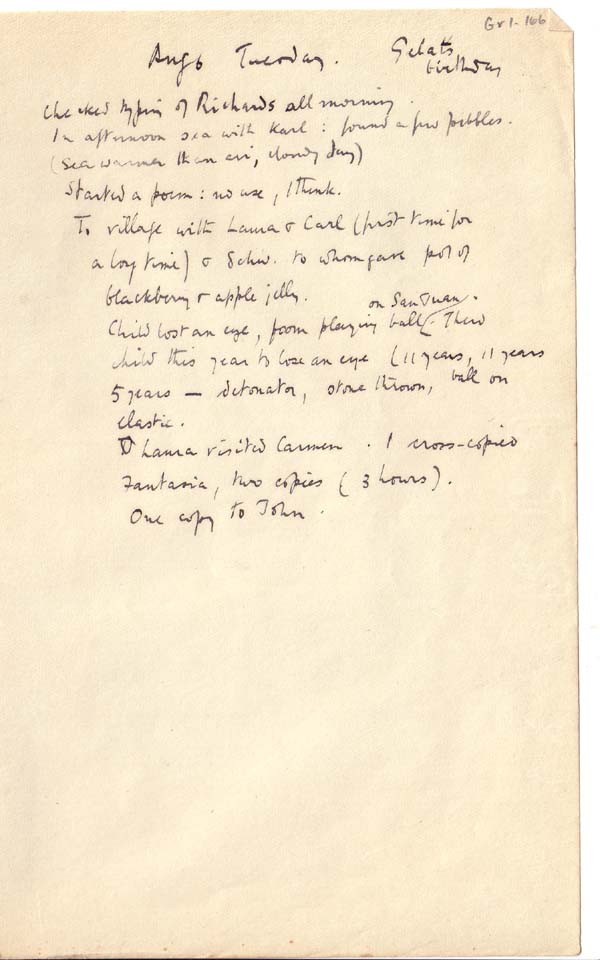 Gr1-166
Aug 6 Tuesday. Gelat's
birthday
Checked typing of Richards all morning.
In afternoon sea with Karl: found a few pebbles.
(Sea warmer than air, cloudy day)
Started a poem: no use, I think.
To village with Laura & Carl (first time for
a long time) & Schw. to whom gave pot of
blackberry & apple jelly.
on San Juan.
Child lost an eye, from playing ball. Third
child this year to lose an eye (11 years, 11 years
5 years — detonator, stone thrown, ball on
elastic.
Laura visited Carmen. I cross-copied
Fantasia, two copies (3 hours).
One copy to John.